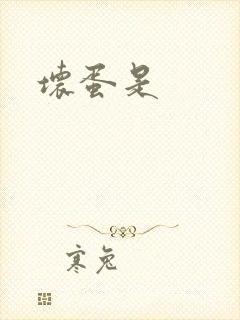 壞蛋是
寒兔